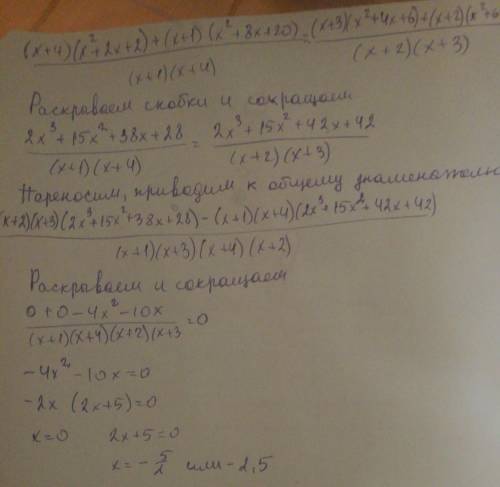 (x+4)(x²+2x+2)+(x+1)(x²+8x+20) = (x+3)(x²+4x+6)+(x+2)(x²+6
(x+1)(x+4) (x+2)(x+3)
Раскраваем скобки и сокращаем
2x³+15x²+38x+28 = 2x³+15x²+42x+42
(x+1)(x+4) (x+2)(x+3)
Переносим, приводим к общему знаменателю
(x+2)(x+3)(2x³+15x²+38x+28)-(x+1)(x+4)(2x³+15x²+42x+42)
(x+1)(x+3)(x+4)(x+2)
Раскраваем и сокращаем
0+0-4x²-10x =0
(x+1)(x+4)(x+2)(x+3
-4x²-10x=0
-2x (2x+5)=0
x=0 2x+5=0
x=-5/2 или -2,5